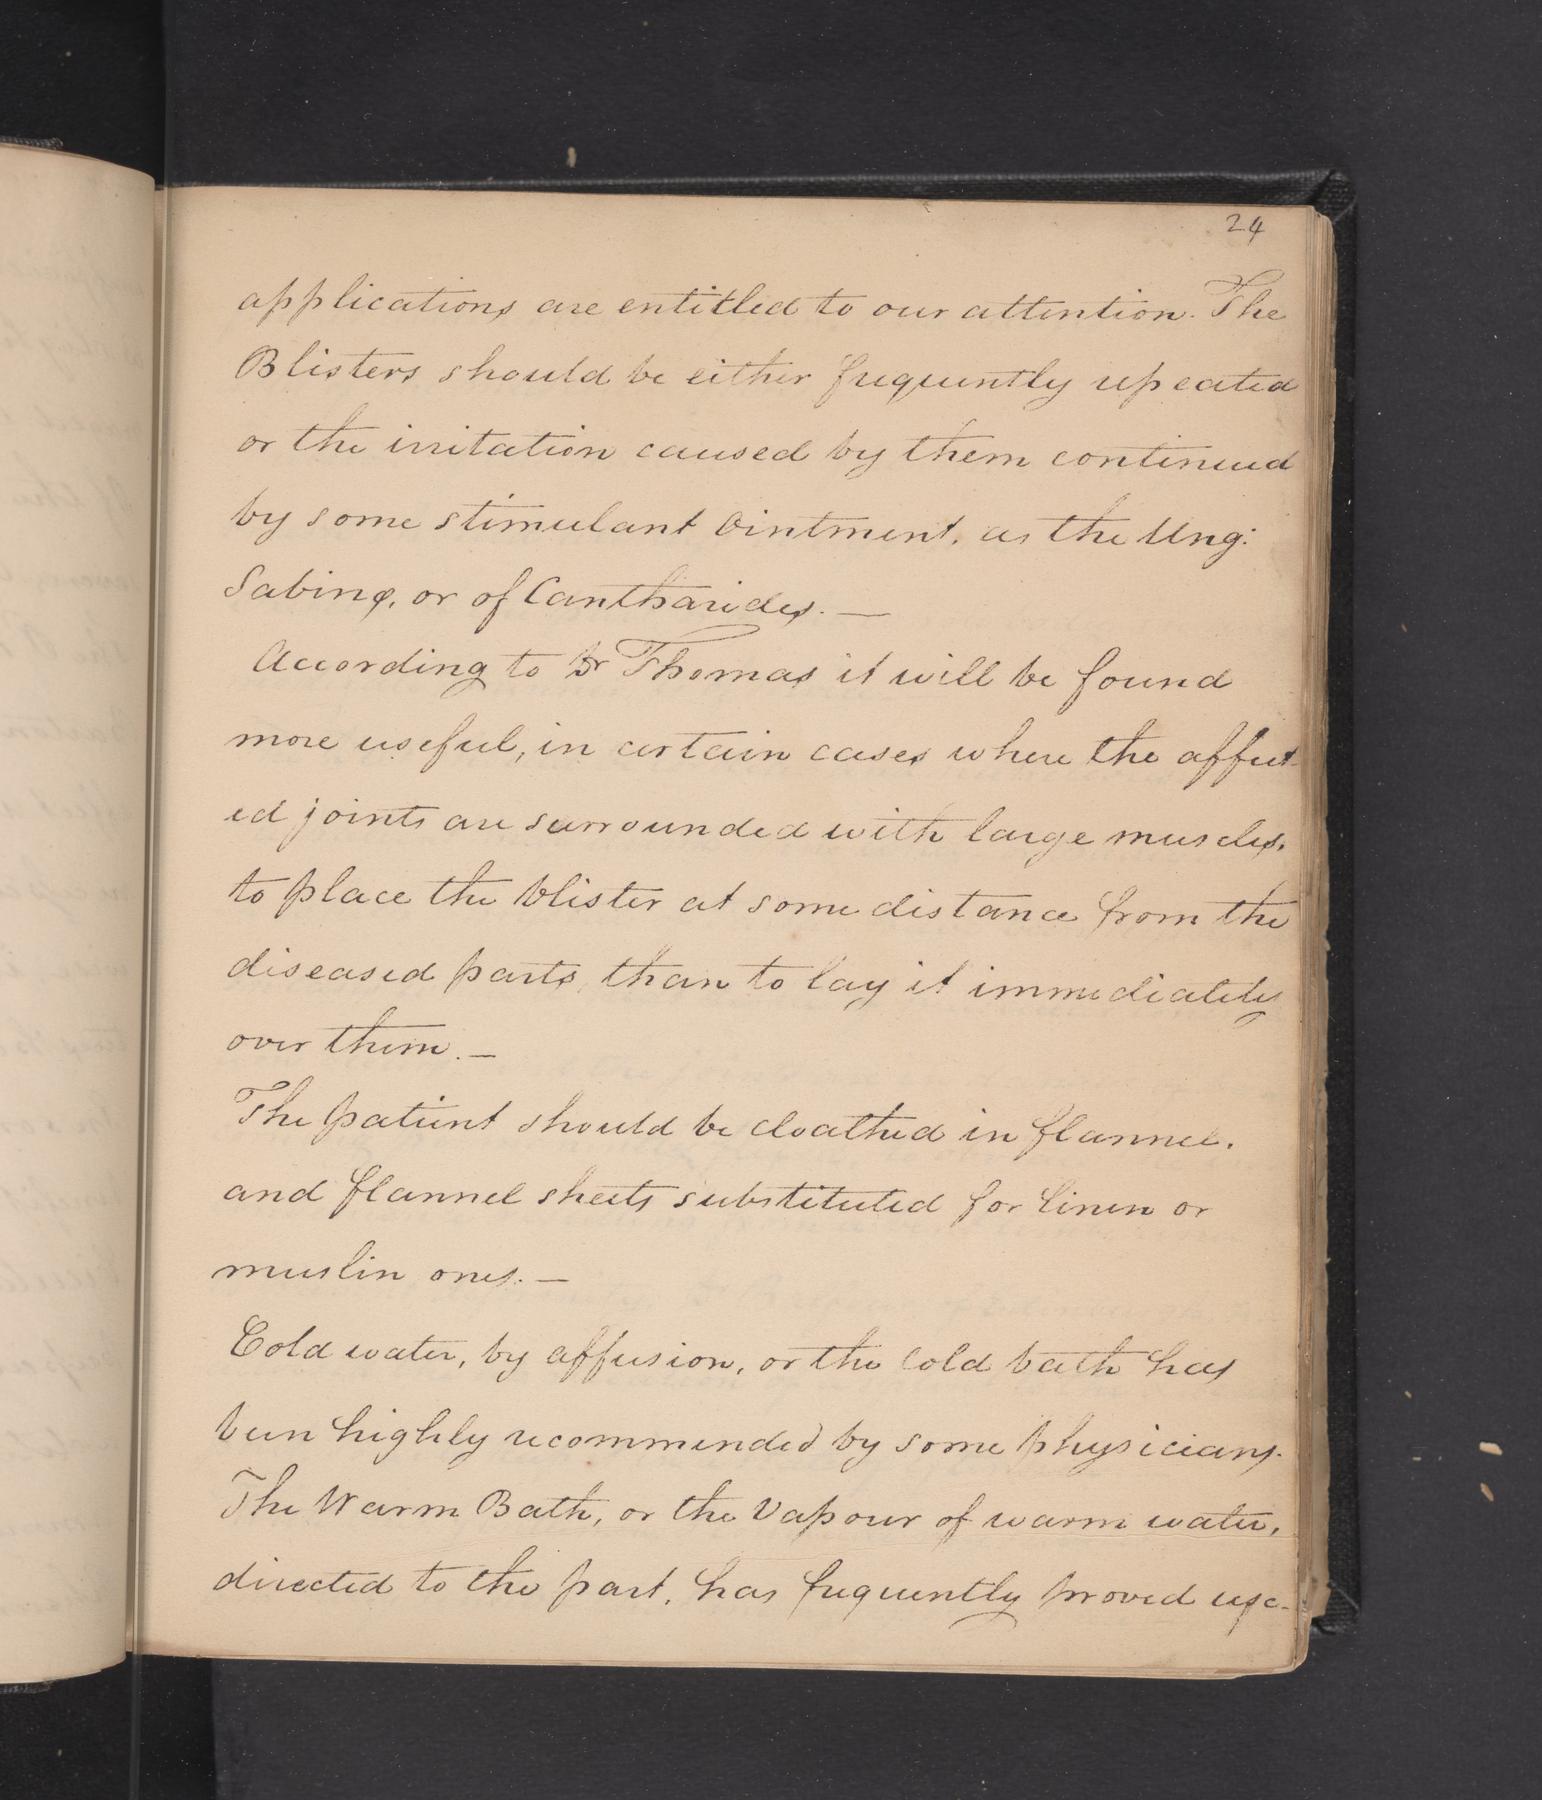 24
applications are entitled to our attention. The
Blisters should be either frequently repeated
or the irritation caused by them continued
by some stimulant Ointment, as the Ung:
Sabinæ, or of Cantharides. —
According to Dr Thomas it will be found
more useful, in certain cases where the affect-
ed joints are surrounded with large muscles,
to place the blister at some distance from the
diseased parts, than to lay it immediately
over them. —
The patient should be cloathed in flannel,
and flannel sheets substituted for linen or
muslin ones. —
Cold water, by affusion, or the Cold bath has
been highly recommended by some physicians.
The Warm Bath, or the Vapour of warm water,
directed to the part, has frequently proved use-